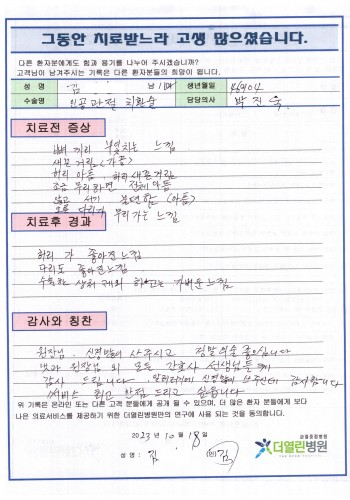 그동안 치료받느라 고생 많으셨습니다.
다른 환자분에게도 힘과 용기를 나누어 주시겠습니까?
고객님이 남겨주시는 기록은 다른 환자분들의 희망이 됩니다.
성 명 김 남 생년월일
수술명 인공관절 치환술 담당의사 박진욱
치료전 증상
뼈 끼리 부딪치는 느낌
새끈거림
허리 아픔, 허리 새끈거림
조금 무리하면 전체 아픔
앉고 서기 불편함 (아픔)
오른 다리가 무리가는 느낌
치료후 경과
허리 가 좋아진 느낌
다리도 좋아진 느낌
수술한 상처 제외 하고는 가벼운 느낌
감사와 칭찬
원장님, 신경많이 써주시고 정말 의술 좋으십니다
원장님 외 모든 간호사 선생님들께
감사 드립니다. 신경많이 써주신데 감사합니다
서비스 최고 만점 드리고 싶습니다
위 기록은 온라인 또는 다른 고객 분들에게 공개 될 수 있으며, 더 많은 환자 분들에게 보다
나은 의료서비스를 제공하기 위한 더열린병원만의 연구에 사용 되는 것을 동의합니다.
2023 년 10 월 18 일
성 명 : 김 (인) 김
관절종합병원
더열린병원